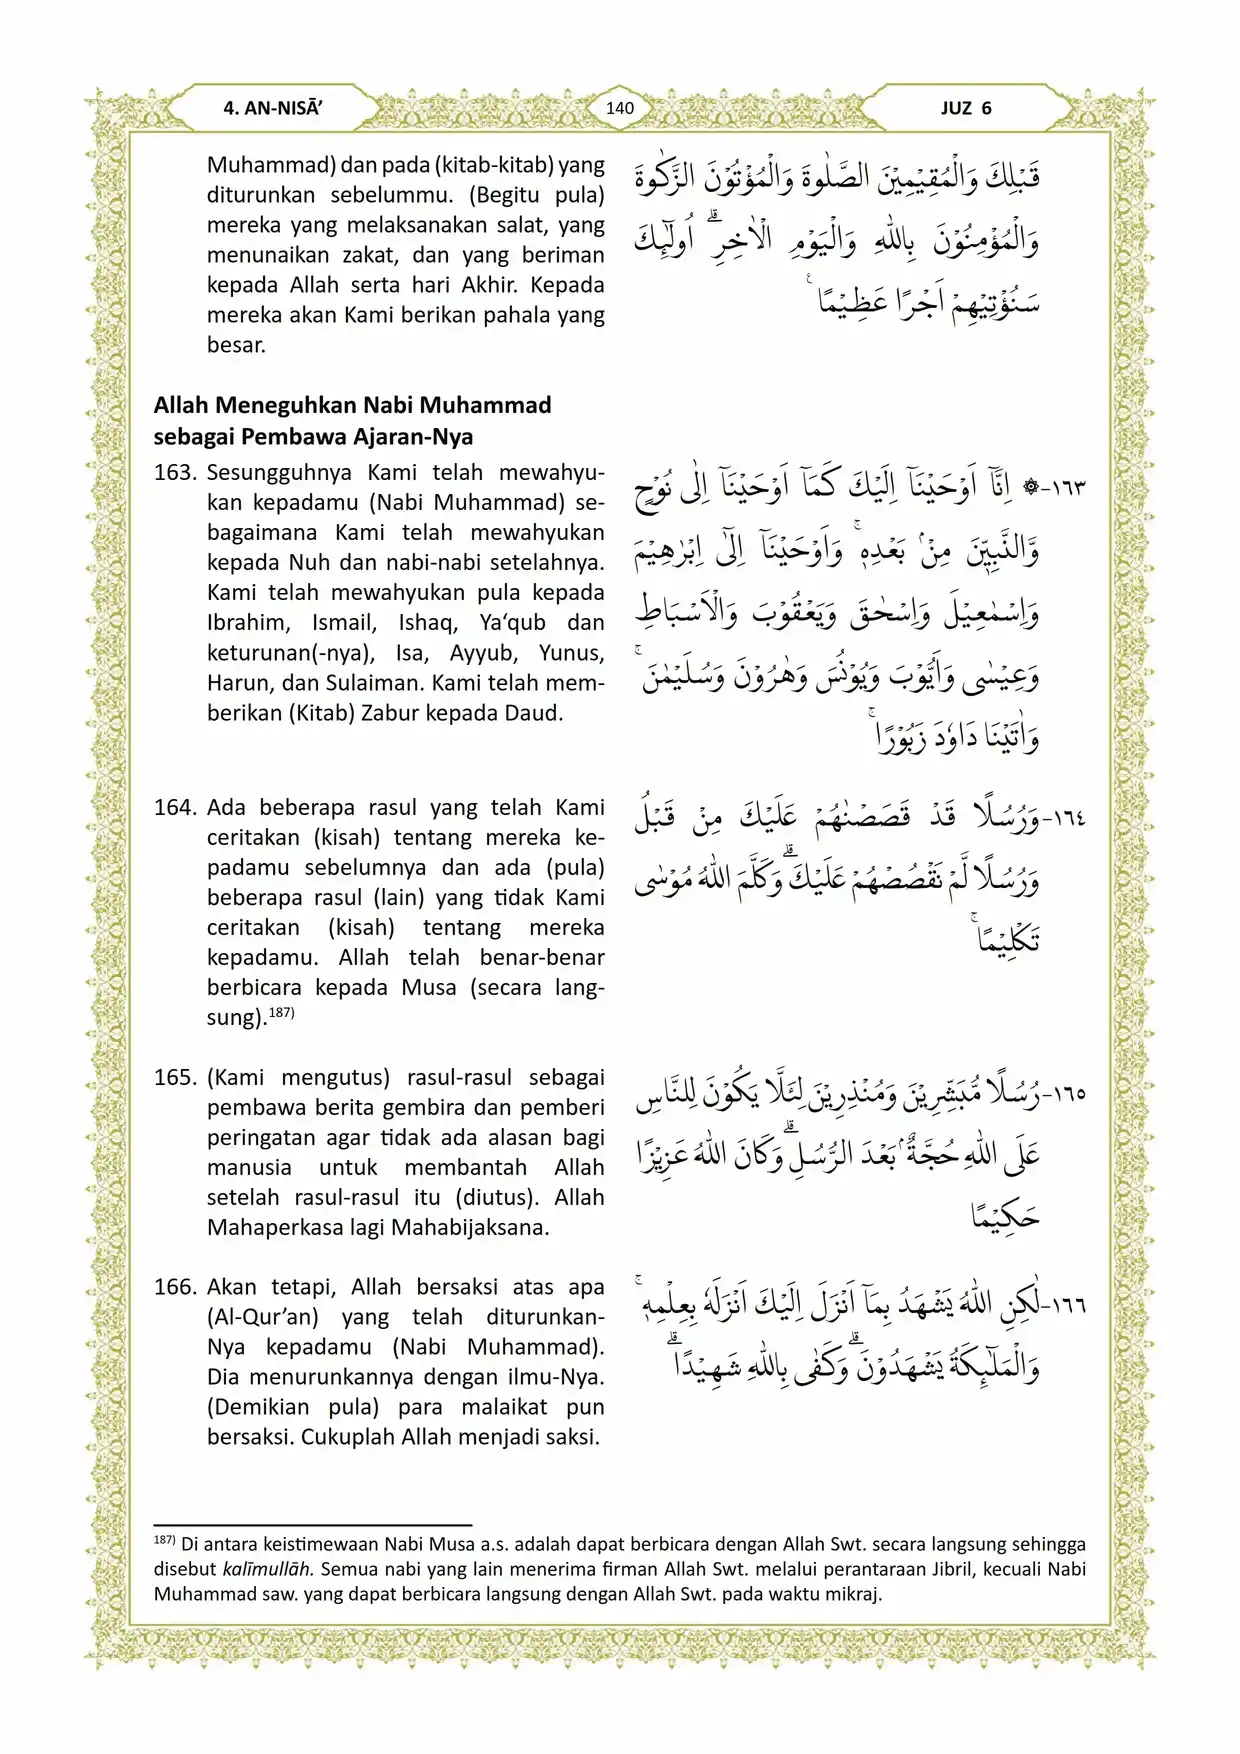 4. AN-NISĀ’
140
JUZ 6
Muhammad) dan pada (kitab-kitab) yang
diturunkan sebelummu. (Begitu pula)
mereka yang melaksanakan salat, yang
menunaikan zakat, dan yang beriman
kepada Allah serta hari Akhir. Kepada
mereka akan Kami berikan pahala yang
besar.
قَبْلِكَ وَالْمُقِيْمِيْنَ الصَّلٰوةَ وَالْمُؤْتُوْنَ الزَّكٰوةَ
وَالْمُؤْمِنُوْنَ بِاللّٰهِ وَالْيَوْمِ الْاٰخِرِۗ اُولٰۤىِٕكَ
سَنُؤْتِيْهِمْ اَجْرًا عَظِيْمًا ࣖ
Allah Meneguhkan Nabi Muhammad
sebagai Pembawa Ajaran-Nya
163. Sesungguhnya Kami telah mewahyu-
kan kepadamu (Nabi Muhammad) se-
bagaimana Kami telah mewahyukan
kepada Nuh dan nabi-nabi setelahnya.
Kami telah mewahyukan pula kepada
Ibrahim, Ismail, Ishaq, Ya‘qub dan
keturunan(-nya), Isa, Ayyub, Yunus,
Harun, dan Sulaiman. Kami telah mem-
berikan (Kitab) Zabur kepada Daud.
١٦٣- ۞ اِنَّآ اَوْحَيْنَآ اِلَيْكَ كَمَآ اَوْحَيْنَآ اِلٰى نُوْحٍ
وَّالنَّبِيّٖنَ مِنْۢ بَعْدِهٖۚ وَاَوْحَيْنَآ اِلٰٓى اِبْرٰهِيْمَ
وَاِسْمٰعِيْلَ وَاِسْحٰقَ وَيَعْقُوْبَ وَالْاَسْبَاطِ
وَعِيْسٰى وَاَيُّوْبَ وَيُوْنُسَ وَهٰرُوْنَ وَسُلَيْمٰنَۚ
وَاٰتَيْنَا دَاوٗدَ زَبُوْرًاۚ
164. Ada beberapa rasul yang telah Kami
ceritakan (kisah) tentang mereka ke-
padamu sebelumnya dan ada (pula)
beberapa rasul (lain) yang tidak Kami
ceritakan (kisah) tentang mereka
kepadamu. Allah telah benar-benar
berbicara kepada Musa (secara lang-
sung).187)
١٦٤- وَرُسُلًا قَدْ قَصَصْنٰهُمْ عَلَيْكَ مِنْ قَبْلُ
وَرُسُلًا لَّمْ نَقْصُصْهُمْ عَلَيْكَۗ وَكَلَّمَ اللّٰهُ مُوْسٰى
تَكْلِيْمًاۚ
165. (Kami mengutus) rasul-rasul sebagai
pembawa berita gembira dan pemberi
peringatan agar tidak ada alasan bagi
manusia untuk membantah Allah
setelah rasul-rasul itu (diutus). Allah
Mahaperkasa lagi Mahabijaksana.
١٦٥- رُسُلًا مُّبَشِّرِيْنَ وَمُنْذِرِيْنَ لِئَلَّا يَكُوْنَ لِلنَّاسِ
عَلَى اللّٰهِ حُجَّةٌ ۢ بَعْدَ الرُّسُلِۗ وَكَانَ اللّٰهُ عَزِيْزًا
حَكِيْمًا
166. Akan tetapi, Allah bersaksi atas apa
(Al-Qur’an) yang telah diturunkan-
Nya kepadamu (Nabi Muhammad).
Dia menurunkannya dengan ilmu-Nya.
(Demikian pula) para malaikat pun
bersaksi. Cukuplah Allah menjadi saksi.
١٦٦- لٰكِنِ اللّٰهُ يَشْهَدُ بِمَآ اَنْزَلَ اِلَيْكَ اَنْزَلَهٗ بِعِلْمِهٖۚ
وَالْمَلٰۤىِٕكَةُ يَشْهَدُوْنَۗ وَكَفٰى بِاللّٰهِ شَهِيْدًاۗ
187) Di antara keistimewaan Nabi Musa a.s. adalah dapat berbicara dengan Allah Swt. secara langsung sehingga
disebut kalīmullāh. Semua nabi yang lain menerima firman Allah Swt. melalui perantaraan Jibril, kecuali Nabi
Muhammad saw. yang dapat berbicara langsung dengan Allah Swt. pada waktu mikraj.